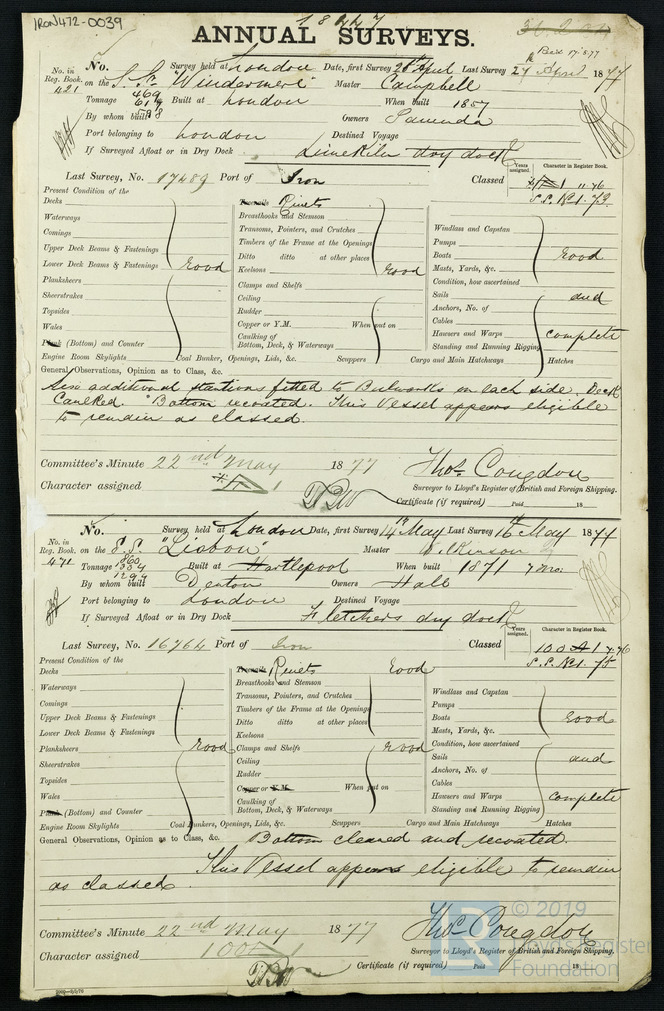 IRON472-0039
18447
ANNUAL SURVEYS.
No. Survey held at London Date, first Survey 2d April Last Survey 27 April 1877
No. in Reg. Book. 421 on the S.S. "Windermere" Master Campbell
Tonnage 469 619 598 Built at London When built 1857
By whom built Owners
Port belonging to London Destined Voyage
If Surveyed Afloat or in Dry Dock Limekiln dry dock
Years assigned. Character in Register Book.
Last Survey, No. 17489 Port of Iron Classed 11.76
S.S. No.1. 73
Present Condition of the
Decks
Waterways
Comings
Upper Deck Beams & Fastenings
Lower Deck Beams & Fastenings Good
Planksheers
Sheerstrakes
Topsides
Wales
Plank (Bottom) and Counter
Treenails Rivets
Breasthooks and Stemson
Transoms, Pointers, and Crutches
Timbers of the Frame at the Openings
Ditto ditto at other places
Keelsons Good
Clamps and Shelfs
Ceiling
Rudder
Copper or Y.M. When put on
Caulking of
Bottom, Deck, & Waterways
Windlass and Capstan
Pumps
Boats Good
Masts, Yards, &c.
Condition, how ascertained
Sails and
Anchors, No. of
Cables
Hawsers and Warps complete
Standing and Running Rigging
Engine Room Skylights Coal Bunker, Openings, Lids, &c. Scuppers Cargo and Main Hatchways Hatches
General Observations, Opinion as to Class, &c.
Six additional stantions fitted to Bulworks on each side. Deck
Caulked. Bottom recoated. This Vessel appears eligible
to remain as classed.
Committee's Minute 22nd May 1877 Thos. Congdon
Character assigned Surveyor to Lloyd's Register of British and Foreign Shipping.
Certificate (if required) Paid 18
No. Survey held at London Date, first Survey 14th May Last Survey 16th May 1877
No. in Reg. Book. 471 on the S.S. "Lisbon" Master Wilkinson
Tonnage 1860 1294 Built at Hartlepool When built 1871 7 mo.
By whom built Denton Owners Hall
Port belonging to London Destined Voyage
If Surveyed Afloat or in Dry Dock Fletchers dry dock
Years assigned. Character in Register Book.
Last Survey, No. 16764 Port of Iron Classed 100 A 1 4.76
S.S. No.1. 75
Present Condition of the
Decks
Waterways
Comings
Upper Deck Beams & Fastenings
Lower Deck Beams & Fastenings
Planksheers Good
Sheerstrakes
Topsides
Wales
Plank (Bottom) and Counter
Treenails Rivets Good
Breasthooks and Stemson
Transoms, Pointers, and Crutches
Timbers of the Frame at the Openings
Ditto ditto at other places
Keelsons
Clamps and Shelfs Good
Ceiling
Rudder
Copper or Y.M. When put on
Caulking of
Bottom, Deck, & Waterways
Windlass and Capstan
Pumps
Boats Good
Masts, Yards, &c.
Condition, how ascertained
Sails and
Anchors, No. of
Cables
Hawsers and Warps complete
Standing and Running Rigging
Engine Room Skylights Coal Bunkers, Openings, Lids, &c. Scuppers Cargo and Main Hatchways Hatches
General Observations, Opinion as to Class, &c. Bottom cleaned and recoated.
This Vessel appears eligible to remain
as classed.
Committee's Minute 22nd May 1877 Thos. Congdon
Character assigned 100 A 1 Surveyor to Lloyd's Register of British and Foreign Shipping.
Certificate (if required) Paid 18
© 2019
Lloyds Register
Foundation